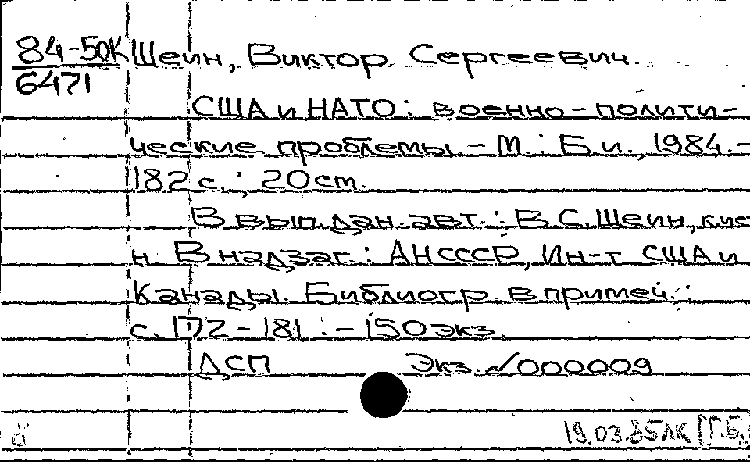 84-50К Шеин, Виктор Сергеевич.
6471
США и НАТО: военно-полити-
ческие проблемы. - М.: Б.и., 1984. -
182 с.; 20 cm.
В вып. дан. авт.: В.С. Шеин, кис
н. В надзаг.: АН СССР, Ин-т США и
Канады. Библиогр. в примеч.:
с. 172-181. - 150 экз.
ДСП Экз. № 000009
19.03.85 ЛК Г.Б.